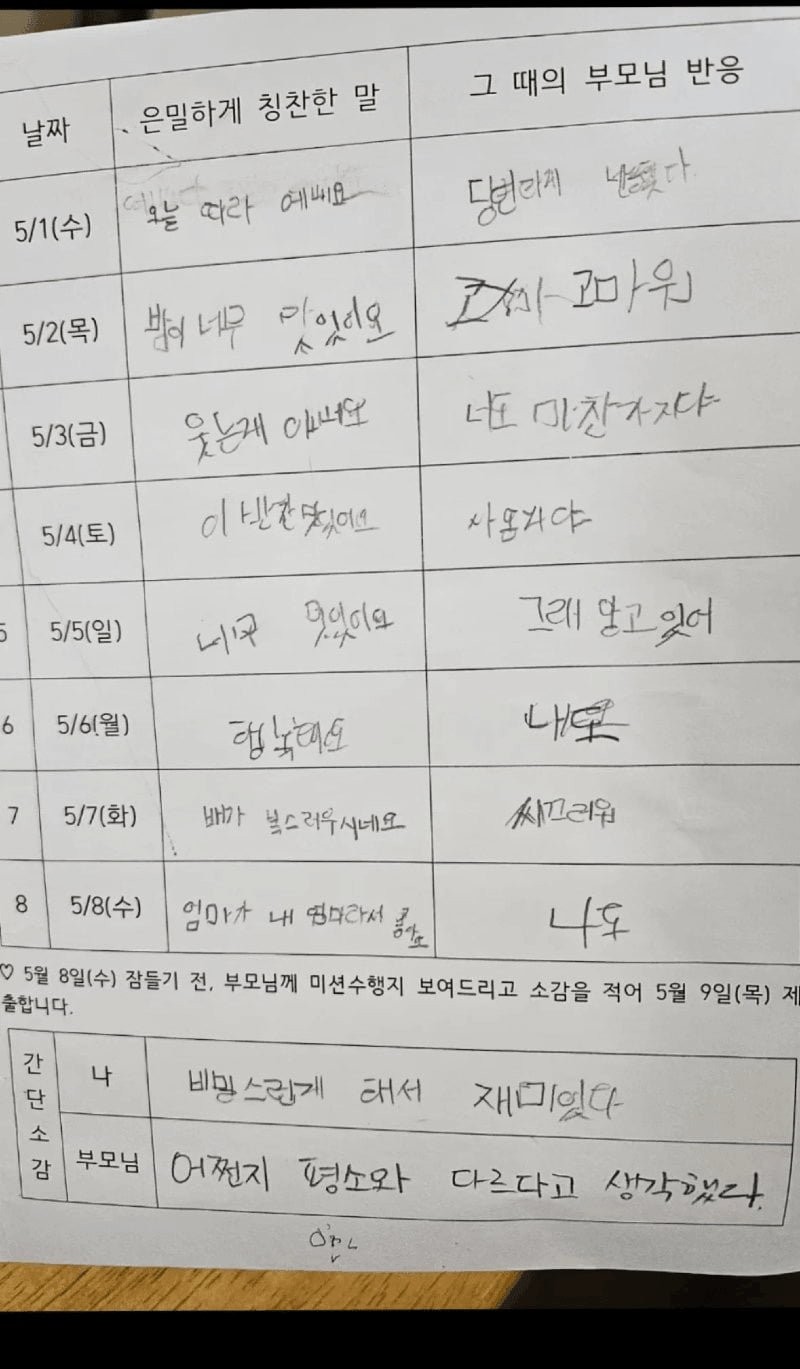 날짜 은밀하게 칭찬한 말 그 때의 부모님 반응
5/1(수) 오늘 따라 예뻐요
5/2(목) 밥이 너무 맛있어요 고마워
5/3(금) 웃는게 너도 마찬가지다
5/4(토) 이 반찬 맛있어요
5 5/5(일) 그래 알고 있어
6 5/6(월) 행복해요
7 5/7(화) 배가 복스러우시네요 씨끄러워
8 5/8(수) 엄마가 내 엄마라서 좋아요 나도
♡ 5월 8일(수) 잠들기 전, 부모님께 미션수행지 보여드리고 소감을 적어 5월 9일(목) 제
출합니다.
간단소감
나 비밍스런게 태서 재미있다
부모님 어쩐지 평소와 다르다고 생각했다.